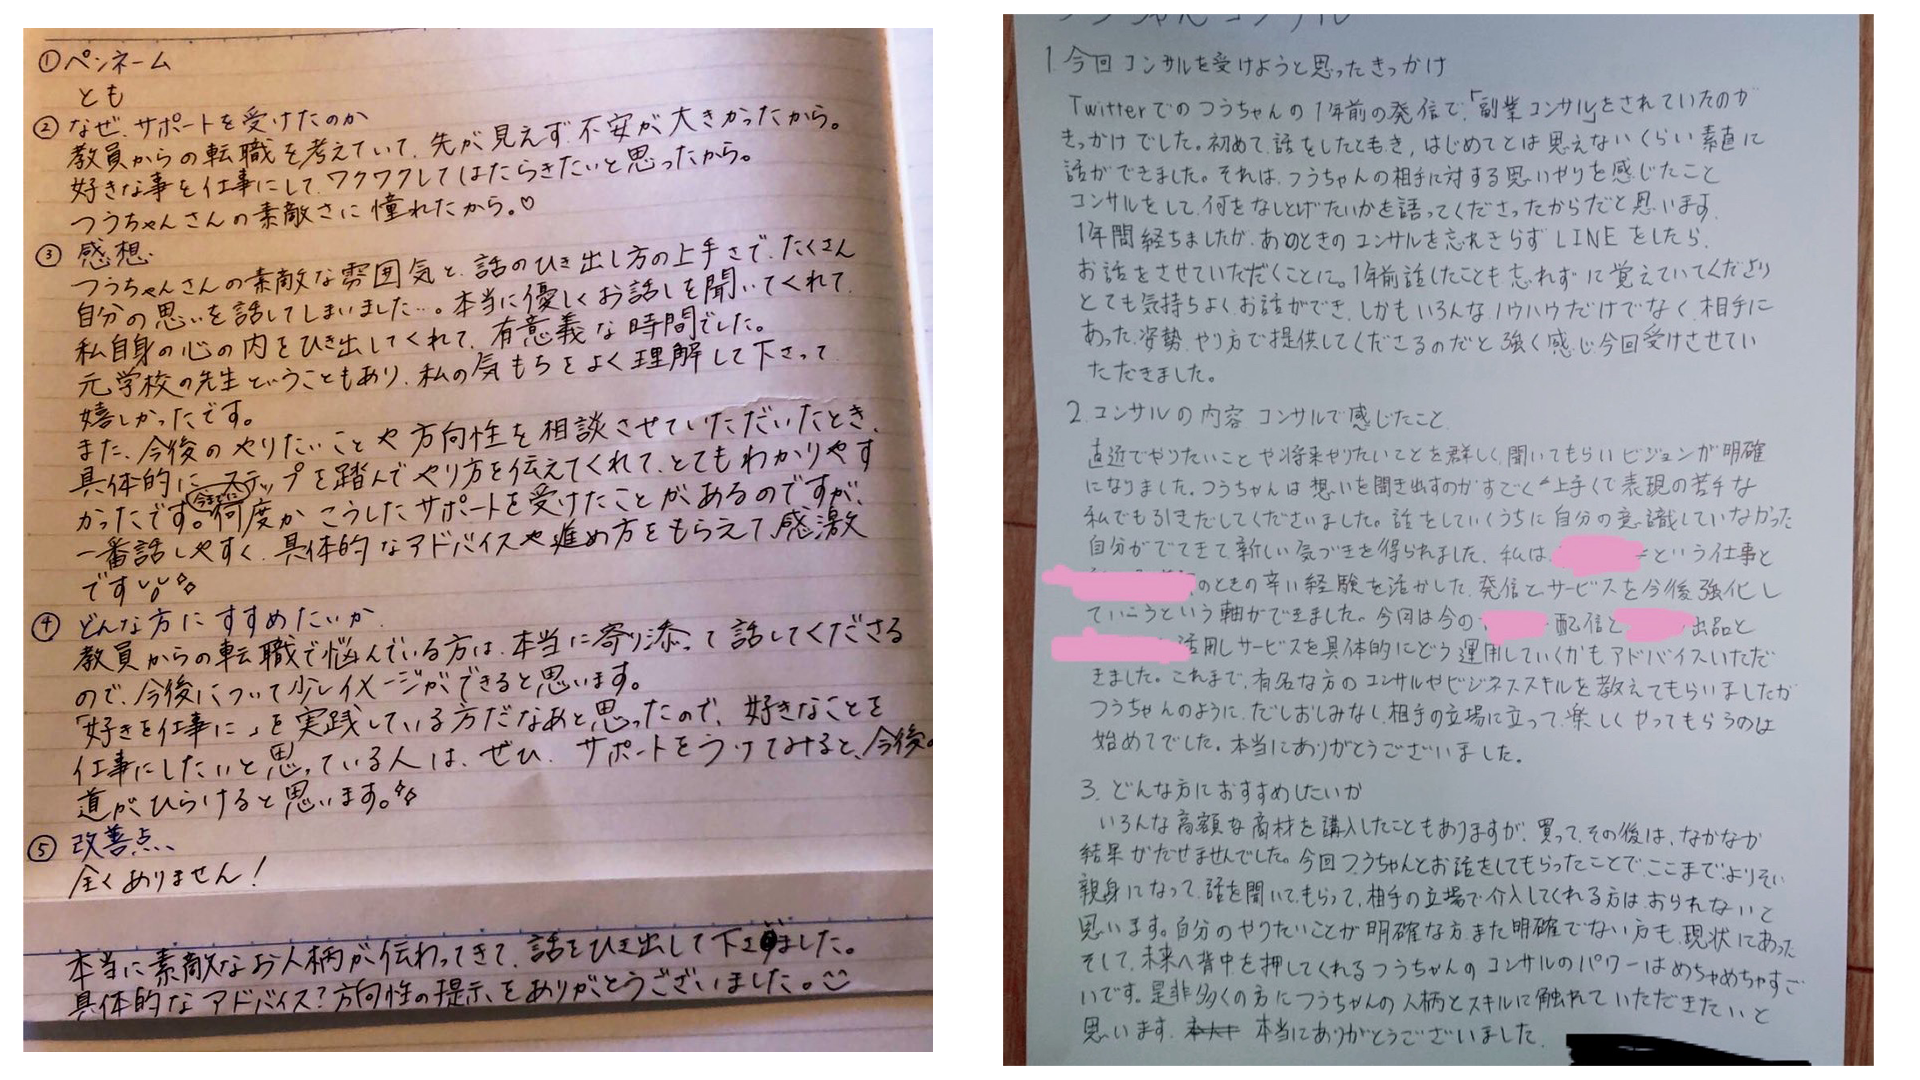 ①ペンネーム
とも
②なぜ、サポートを受けたのか
教員からの転職を考えていて、先が見えず不安が大きかったから。
好きな事を仕事にして、ワクワクしてはたらきたいと思ったから。
つうちゃんさんの素敵さに憧れたから。♡
③感想.
つうちゃんさんの素敵な雰囲気と、話のひき出し方の上手さで、たくさん
自分の思いを話してしまいました…。本当に優しくお話しを聞いてくれて、
私自身の心の内をひき出してくれて、有意義な時間でした。
元学校の先生ということもあり、私の気もちをよく理解して下さって
嬉しかったです。
また、今後のやりたいことや方向性を相談させていただいたとき、
具体的に、ステップを踏んでやり方を伝えてくれて、とてもわかりやす
かったです。今までに何度かこうしたサポートを受けたことがあるのですが、
一番話しやすく、具体的なアドバイスや進め方をもらえて感激
です
④どんな方にすすめたいか.
教員からの転職で悩んでいる方は、本当に寄り添って話してくださる
ので、今後について少しイメージができると思います。
「好きを仕事に」を実践している方だなあと思ったので、好きなことを
仕事にしたいと思っている人は、ぜひ、サポートをうけてみると、今後の
道がひらけると思います。
⑤改善点、
全くありません!
本当に素敵なお人柄が伝わってきて、話をひき出して下さいました。
具体的なアドバイス?方向性の提示、をありがとうございました。
つうちゃんコンサル
1.今回コンサルを受けようと思ったきっかけ
Twitterでのつうちゃんの1年前の発信で、「副業コンサル」をされていたのが
きっかけでした。初めて、話をしたともき、はじめてとは思えないくらい素直に
話ができました。それは、つうちゃんの相手に対する思いやりを感じたこと
コンサルをして、何をなしとげたいかを語ってくださったからだと思います。
1年間経ちましたが、あのときのコンサルを忘れきらずLINEをしたら、
お話をさせていただくことに。1年前話したことも忘れずに覚えていてくださり
とても気持ちよくお話ができ、しかもいろんなノウハウだけでなく、相手に
あった、姿勢、やり方で提供してくださるのだと強く感じ今回受けさせてい
ただきました。
2.コンサルの内容 コンサルで感じたこと
直近でやりたいことや将来やりたいことを詳しく、聞いてもらいビジョンが明確
になりました。つうちゃんは想いを聞き出すのがすごく上手くて表現の苦手な
私でも引きだしてくださいました。話をしていくうちに自分の意識していなかった
自分がでてきて新しい気づきを得られました。私は、という仕事と
のときの辛い経験を活かした、発信とサービスを今後強化し
ていこうという軸ができました。今回は今の配信と出品と
活用しサービスを具体的にどう運用していくかもアドバイスいただ
きました。これまで、有名な方のコンサルやビジネススキルを教えてもらいましたが
つうちゃんのように、だしおしみなし、相手の立場に立って、楽しくやってもらうのは
始めてでした。本当にありがとうございました。
3.どんな方におすすめしたいか
いろんな高額な商材を購入したこともありますが、買って、その後は、なかなか
結果がだせませんでした。今回つうちゃんとお話をしてもらったことで、ここまでよりそい
親身になって、話を聞いてもらって、相手の立場で介入してくれる方は、おられないと
思います。自分のやりたいことが明確な方、また明確でない方も、現状にあった
そして、未来へ背中を押してくれるつうちゃんのコンサルのパワーはめちゃめちゃすご
いです。是非多くの方につうちゃんの人柄とスキルに触れていただきたいと
思います。本当にありがとうございました.